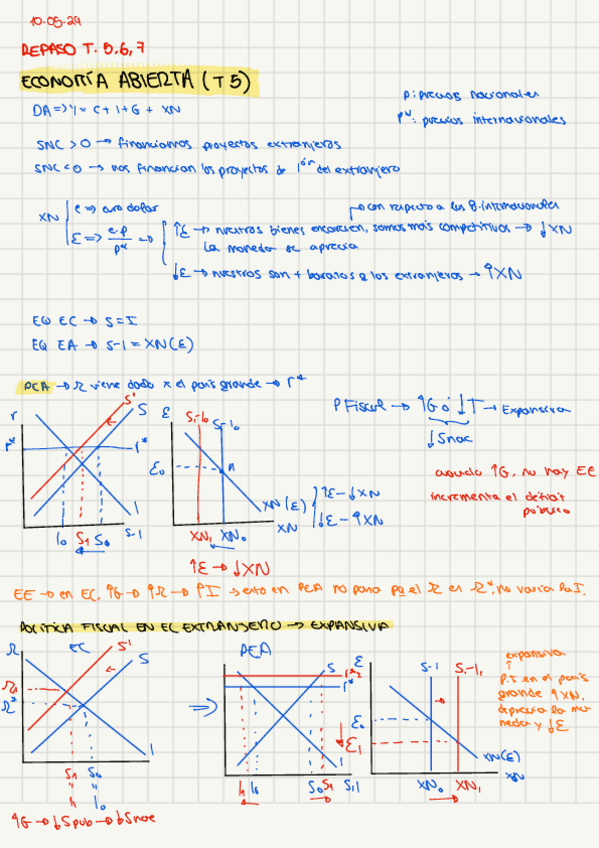 10-05-24
REPASO T. 5, 6, 7
ECONOMÍA ABIERTA (T5)
DA => Y = C + I + G + XN
p: precios nacionales
p*: precios internacionales
SNC > 0 → financiamos proyectos extranjeros
SNC < 0 → nos financian los proyectos de Ión del extranjero
XN
e => euro dolar
ε => e.p / p* =>
→ con respecto a los B. internacionales
↑ε → nuestros bienes encarecen, somos más competitivos → ↓XN
La moneda se aprecia
↓ε → nuestros son + baratos a los extranjeros → ↑XN
EQ EC → S = I
EQ EA → S-I = XN(ε)
PEA → r viene dado x el país grande → r*
P Fiscal → ↑G ó ↓T → Expansiva
↓Snac
cuando ↑G, no hay EE
incrementa el deficit
público
r
r*
S'
S
I*
I
S-I
I0 S1 S0
ε
S-I0
S-I0
ε0
A
XN(ε)
XN
XN1 XN0
↑ε - ↓XN
↓ε - ↑XN
↑ε → ↓XN
EE → en EC, ↑G → ↑r → ↑I → esto en PEA no pasa pq el r es r*, no varía la I.
POLÍTICA FISCAL EN EL EXTRANJERO → EXPANSIVA
r
EC
S'
S
r1
r*
I
S1 S0
I1 I0
↑G → ↓Spub → ↓Snac
=>
PEA
S
r*2
r*
I
I1 I0
S0 S1 S,I
ε
S-I
S-I1
ε0
ε1
XN(ε)
XN
XN0 XN1
expansiva
P.F en el país
grande ↑XN,
deprecia la mo-
neda y ↓ε